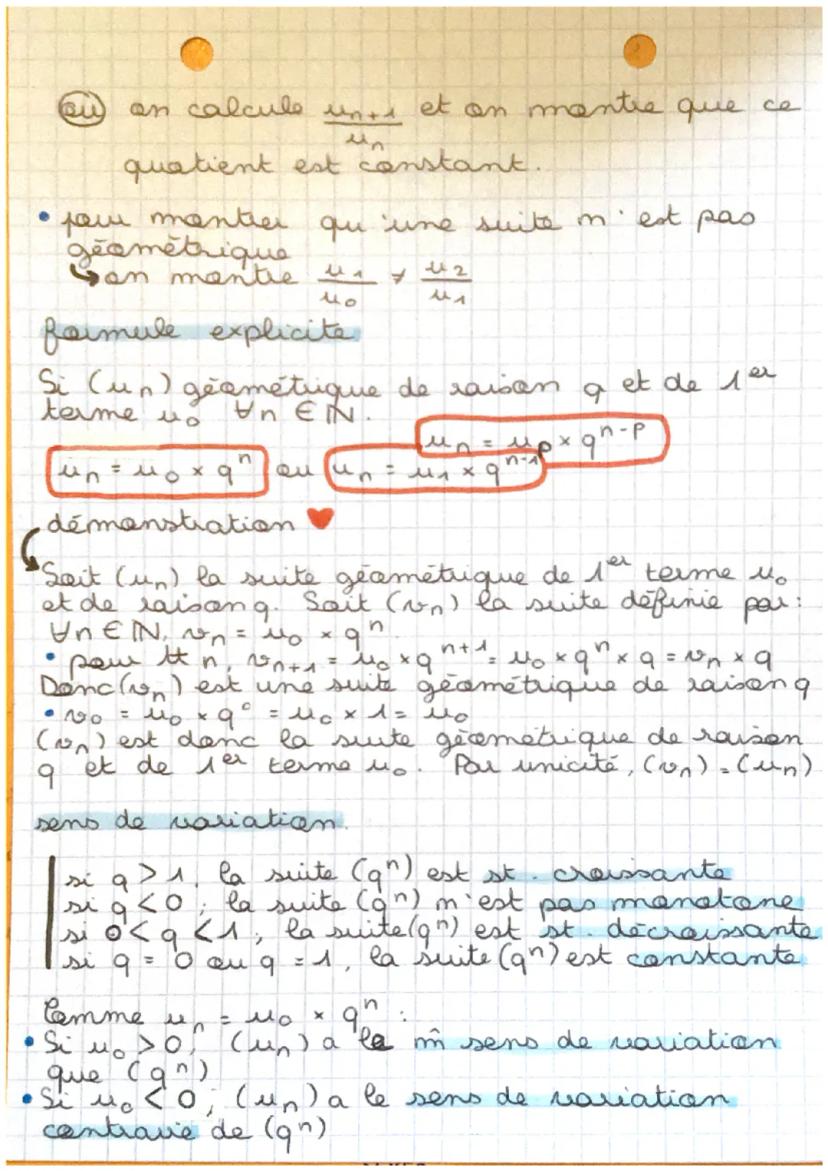 ou on calcule u_{n+1}/u_n et on montre que ce
quotient est constant.
• pour montrer qu'une suite n'est pas
géométrique
↳ on montre u_1/u_0 ≠ u_2/u_1
formule explicite
Si (u_n) géométrique de raison q et de 1er
terme u_0 ∀n ∈ ℕ.
u_n = u_p × q^{n-p}
u_n = u_0 × q^n ou u_n = u_1 × q^{n-1}
démonstration ♥
↳ Soit (u_n) la suite géométrique de 1er terme u_0
et de raison q. Soit (v_n) la suite définie par :
∀n ∈ ℕ, v_n = u_0 × q^n
• pour tt n, v_{n+1} = u_0 × q^{n+1} = u_0 × q^n × q = v_n × q
Donc (v_n) est une suite géométrique de raison q
• v_0 = u_0 × q^0 = u_0 × 1 = u_0
(v_n) est donc la suite géométrique de raison
q et de 1er terme u_0. Par unicité, (v_n) = (u_n)
sens de variation.
si q > 1, la suite (q^n) est st. croissante
si q < 0, la suite (q^n) n'est pas monotone
si 0 < q < 1, la suite (q^n) est st. décroissante
si q = 0 ou q = 1, la suite (q^n) est constante
Comme u_n = u_0 × q^n :
• Si u_0 > 0, (u_n) a le m̂ sens de variation
que (q^n)
• Si u_0 < 0, (u_n) a le sens de variation
contraire de (q^n)